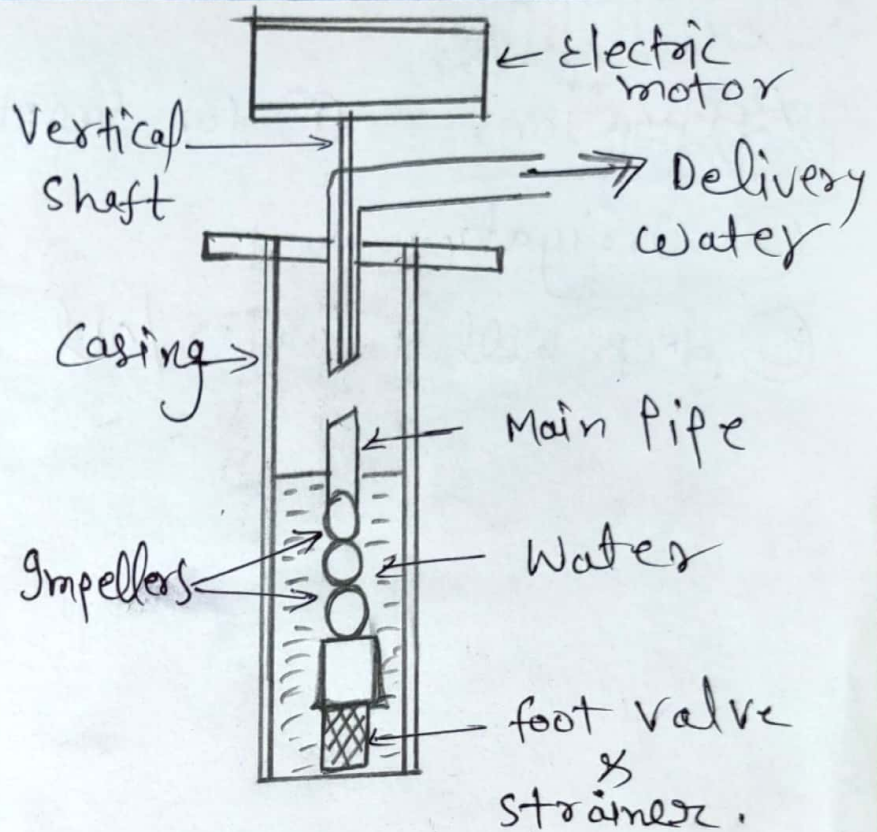 Electric
motor
Vertical
Shaft
Delivery
water
Casing
Main Pipe
Impellers
Water
foot valve
&
strainer.